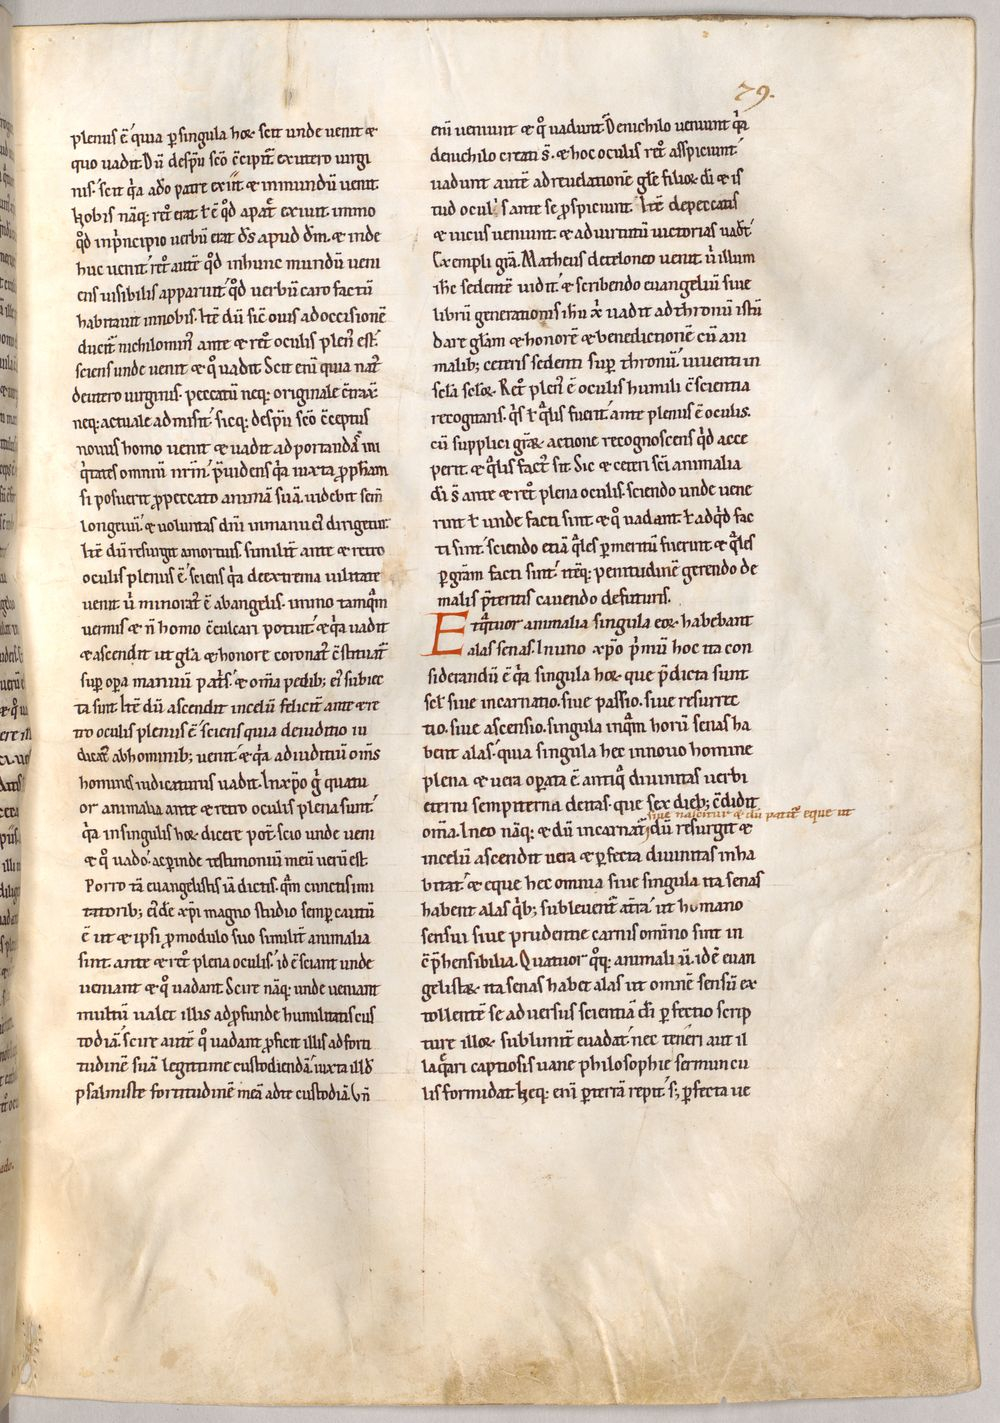 79.
plenus ē quia ꝑ singula hoꝝ scit unde uenit &
quo uadit. Dū de spū scō c̄cipit̄ ex utero uirgi
nis. scit q̄a a dō patre exiit & in mundū uenit.
Nobis nāq; ret° erat ł ē q°d a pat̄ exiuit. immo
q°d in p̄ncipio uerbū erat d̄s apud d̄m. & inde
huc uenit. ret° autē q°d in hunc mundū ueni
ens uisibilis apparuit. q°d uerbū caro factū
habitauit in nobis. Itē dū sic̄ ouis ad occisionē
ducit̄ nichilomin᷒ ante & ret° oculis plen᷒ est.
sciens unde uenit & q°uadit. Scit enī quia nat᷒
de utero uirginis. peccatū neq; originale c̄trax̄
neq; actuale admisit. sicq; de spū scō c̄ceptus
nouus homo uenit & uadit ad portandā ini
q̄tates omniū nr̄m. p̄uidens q̄a iuxta ꝓph̄am
si posuerit ꝓ peccato animā suā. uidebit sem̄
longeuū. & uoluntas dn̄i in manu ei᷒ dirigetur.
Itē dū resurgit a mortuis. similit̄ ante & retro
oculis plenus ē. sciens q̄a de extrema uilitate
uenit. ū minorat᷒ ē ab angelis. immo tamq̄m
uermis & n̄ homo c̄culcari potuit. & q̄a uadit
& ascendit ut gl̄a & honore coronat᷒ c̄stituat̄
sup̄ oꝑa manuū pat̄s. & om̄a pedib; ei᷒ subiec
ta sint. Itē dū ascendit in celū felicit̄ ante & re
tro oculis plenus ē. sciens quia de iuditio iu
dicat᷒ ab hominib; uenit. & q̄a ad iuditiū om̄s
homines iudicaturus uadit. In xp̄o ḡ quatu
or animalia ante & retro oculis plena sunt.
q̄a in singulis hoꝝ dicere pot̄. scio unde ueni
& q°uado. ac ꝑinde testimoniū meū uerū est.
Porro tā euangelistis iā dictis. q̄m cunctis imi
tatorib; ei᷒dē xp̄i magno studio semꝑ cautū
ē ut & ipsi ꝓ modulo suo similit̄ animalia
sint. ante & ret° plena oculis. id ē sciant unde
ueniant & q°uadant. Scire nāq; unde ueniant
multū ualet illis ad ꝓfunde humilitatis cus
todiā. scire autē q°uadant ꝓficit illis ad forti
tudinē suā legitime custodiendā. iuxta illd̄
psalmiste fortitudinē meā ad te custodiā. Un̄
enī ueniunt & q°uadunt. De nichilo ueniunt q̄a
de nichilo creati s̄. & hoc oculis ret° asspiciunt.
uadunt autē ad reuelationē gl̄e filioꝝ dī & is
tud ocul᷒ s ante se ꝓspiciunt. Itē de peccatis
& uicus ueniunt. & ad uirtutū uictorias uad̄t.
Exempli gr̄a. Matheus de teloneo uenit ū illum
ih̄c sedentē uidit. & scribendo euangeliū siue
librū generationis ih̄u x̄p̄i uadit ad thronū istū
dare gl̄am & honorē & benedictionē cū ani
malib; ceteris sedenti sup̄ thronū. uiuenti in
scl̄a scl̄oꝝ. Ret° plen᷒ ē oculis humili c̄scientia
recogitans. q̄s ł q̄lis fuerit. ante plenus ē oculis.
cū supplici gr̄aꝝ actione recognoscens q̄d acce
perit. & q̄lis fact᷒ sit. Sic & ceteri sc̄i animalia
dī s̄ ante & ret° plena oculis. sciendo unde uene
rint ł unde facti sint & q°uadant. ł ad q̄d fac
ti sint. sciendo etiā q̄les ꝑ meritū fuerint & q̄les
ꝑ gr̄am facti sint. itēq; penitudinē gerendo de
malis p̄teritis cauendo de futuris.
Et q̄tuor animalia singula eoꝝ habebant
alas senas. In uno xp̄o p̄mū hoc ita con
siderandū ē q̄a singula hoꝝ que p̄dicta sunt
scl̄. siue incarnatio. siue passio. siue resurrec
tio. siue ascensio. singula inq̄m horū senas ha
bent alas. quia singula hec in nouo homine
plena & uera oꝑata ē antiq̄ diuinitas uerbi
eterni sempiterna deitas. que sex dieb; c̄didit
siue nascitur & dū patit̄ eque ut
om̄a. In eo nāq; & dū incarnat̄ dū resurgit &
in celū ascendit uera & ꝑfecta diuinitas inha
bitat. & eque hec omnia siue singula ita senas
habent alas q̄b; subleuent̄ at̄ra. ut humano
sensui siue prudentie carnis omnino sint in
c̄p̄hensibilia. Quatuor q°q; animaliū. id ē euan
gelistaꝝ. ita senas habet alas ut omnē sensū ex
tollentē se aduersus scientiā dī ꝑfectio scrip
ture illoꝝ sublimit̄ euadat. nec teneri aut il
laq̄ari captiosis uane philosophie sermuncu
lis formidat. Neq; enī ꝑ terrā repit. s; ꝑfecta ue